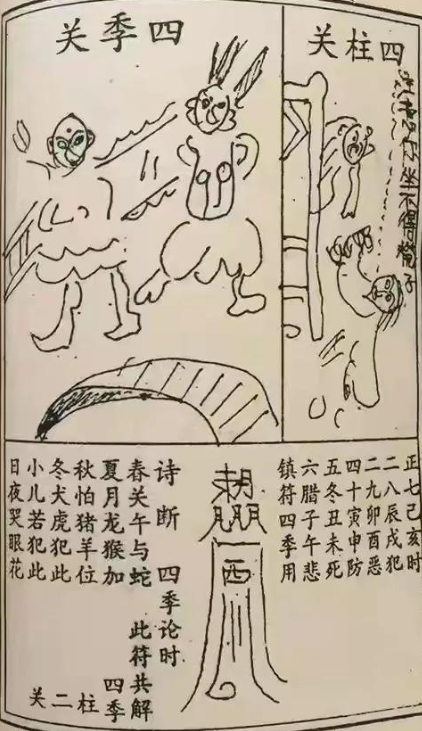 四柱关
坐不得凳子
四季关
正七己亥时
二八辰戌犯
二九卯酉恶
四十寅申防
五冬丑未死
六腊子午悲
镇符四季用
西
诗断 四季论时
春关午与蛇 此符共解
夏月龙猴加
秋怕猪羊位
冬犬虎犯此
小儿若犯此
日夜哭眼花
四季柱二关